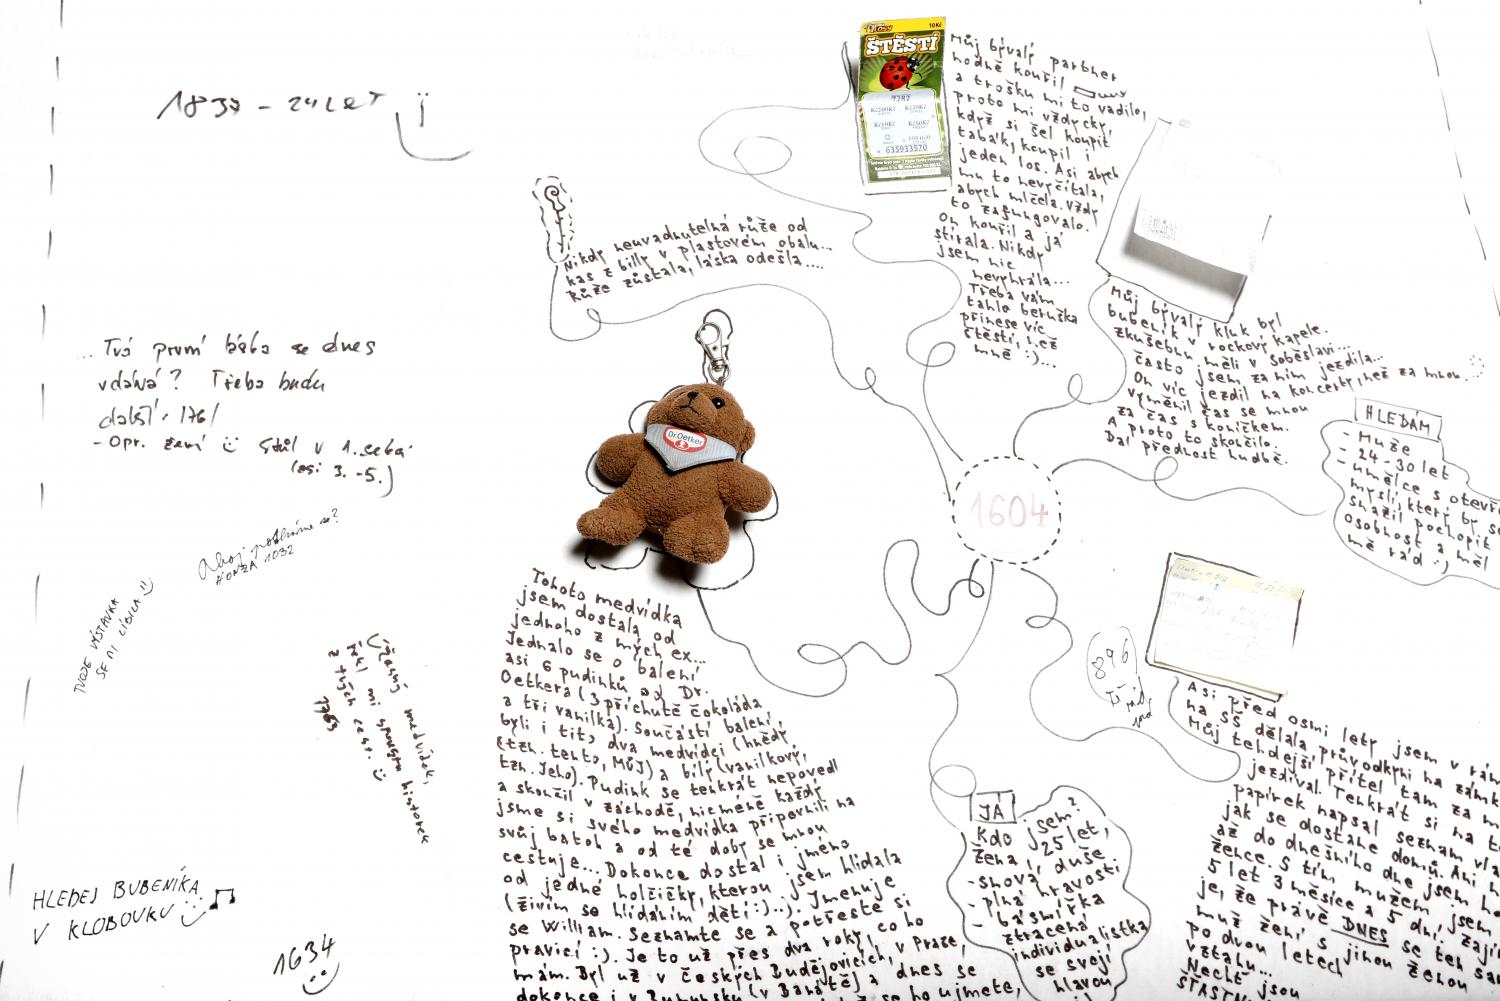 1837 - 24 LET
... Tvá první bába se dnes
vdává? Třeba budu
další. 176/
- Opr. žení Stůl v 1.
(asi 3. -5.)
Ahoj potkáme se?
HONZA 1032
TVOJE VÝSTAVKA
SE MI LÍBILA :)
Úžasný medvídek,
řekl mi spoustu historek
z tvých cest. :)
1763
HLEDEJ BUBENÍKA
V KLOBOUKU :)
1634
Nikdy neuvadnutelná růže od
kas z billy v plastovém obalu...
Růže zůstala, láska odešla....
10 Kč
ŠTĚSTÍ
7282
635933570
Můj bývalý partner
hodně kouřil
a trošku mi to vadilo,
proto mi vždycky,
když si šel koupit
tabák, koupil i
jeden los. Asi abych
mu to nevyčítala,
abych mlčela. Vždy
to zafungovalo.
On kouřil a já
stírala. Nikdy
jsem nic
nevyhrála...
Třeba vám
tahle beruška
přinese víc
štěstí, než
mně :)...
Můj bývalý kluk byl
bubeník v rockový kapele.
Zkušebnu měli v Soběslavi...
často jsem za ním jezdila...
On víc jezdil na koncerty, než za mnou...
Vyměnil čas se mnou
za čas s koníčkem.
A proto to skončilo.
Dal přednost hudbě.
HLEDÁM
- Muže
- 24-30 let
- umělce s otevř
myslí, který by se
snažil pochopit
osobnost a měl
mě rád :)
1604
Dr. Oetker
Tohoto medvídka
jsem dostala od
jednoho z mých ex...
Jednalo se o balení
asi 6 pudinků od Dr.
Oetkera (3 příchutě čokoláda
a tři vanilka). Součástí balení,
byli i tit, dva medvídci (hnědý
(tzn. tento, MŮJ) a bílý (vanilkový,
tzn. Jeho). Pudink se tenkrát nepovedl
a skončil v záchodě, nicméně každý
jsme si svého medvídka připevnili na
svůj batoh a od té doby se mnou
cestuje... Dokonce dostal i jméno
od jedné holčičky, kterou jsem hlídala
(živím se hlídáním dětí :)..). Jmenuje
se William. Seznamte se a potřeste si
pravicí :). Je to už přes dva roky, co ho
mám. Byl už v Českých Budějovicích, v Praze,
dokonce i v Rumunsku (v Banátě) a dnes se
se ho ujmete,
896
JÁ
Kdo jsem?
Žena, 25 let,
- snová duše
- plná hravosti
- básnířka
ztracená
individualistka
se svojí
hlavou
Asi před osmi lety jsem v rám
na SŠ dělala průvodkyni na zámk
Můj tehdejší přítel tam za m
jezdíval. Tenkrát si na to
papírek napsal seznam vla
jak se dostane domů. Ani n
až do dnešního dne jsem ho
žence. S tím mužem jsem
5 let 3 měsíce a 5 dní. Zají
je, že právě DNES se ten sa
muž žení s jinou ženou
po dvou letech
vztahu...
Nechť jsou
ŠŤASTN